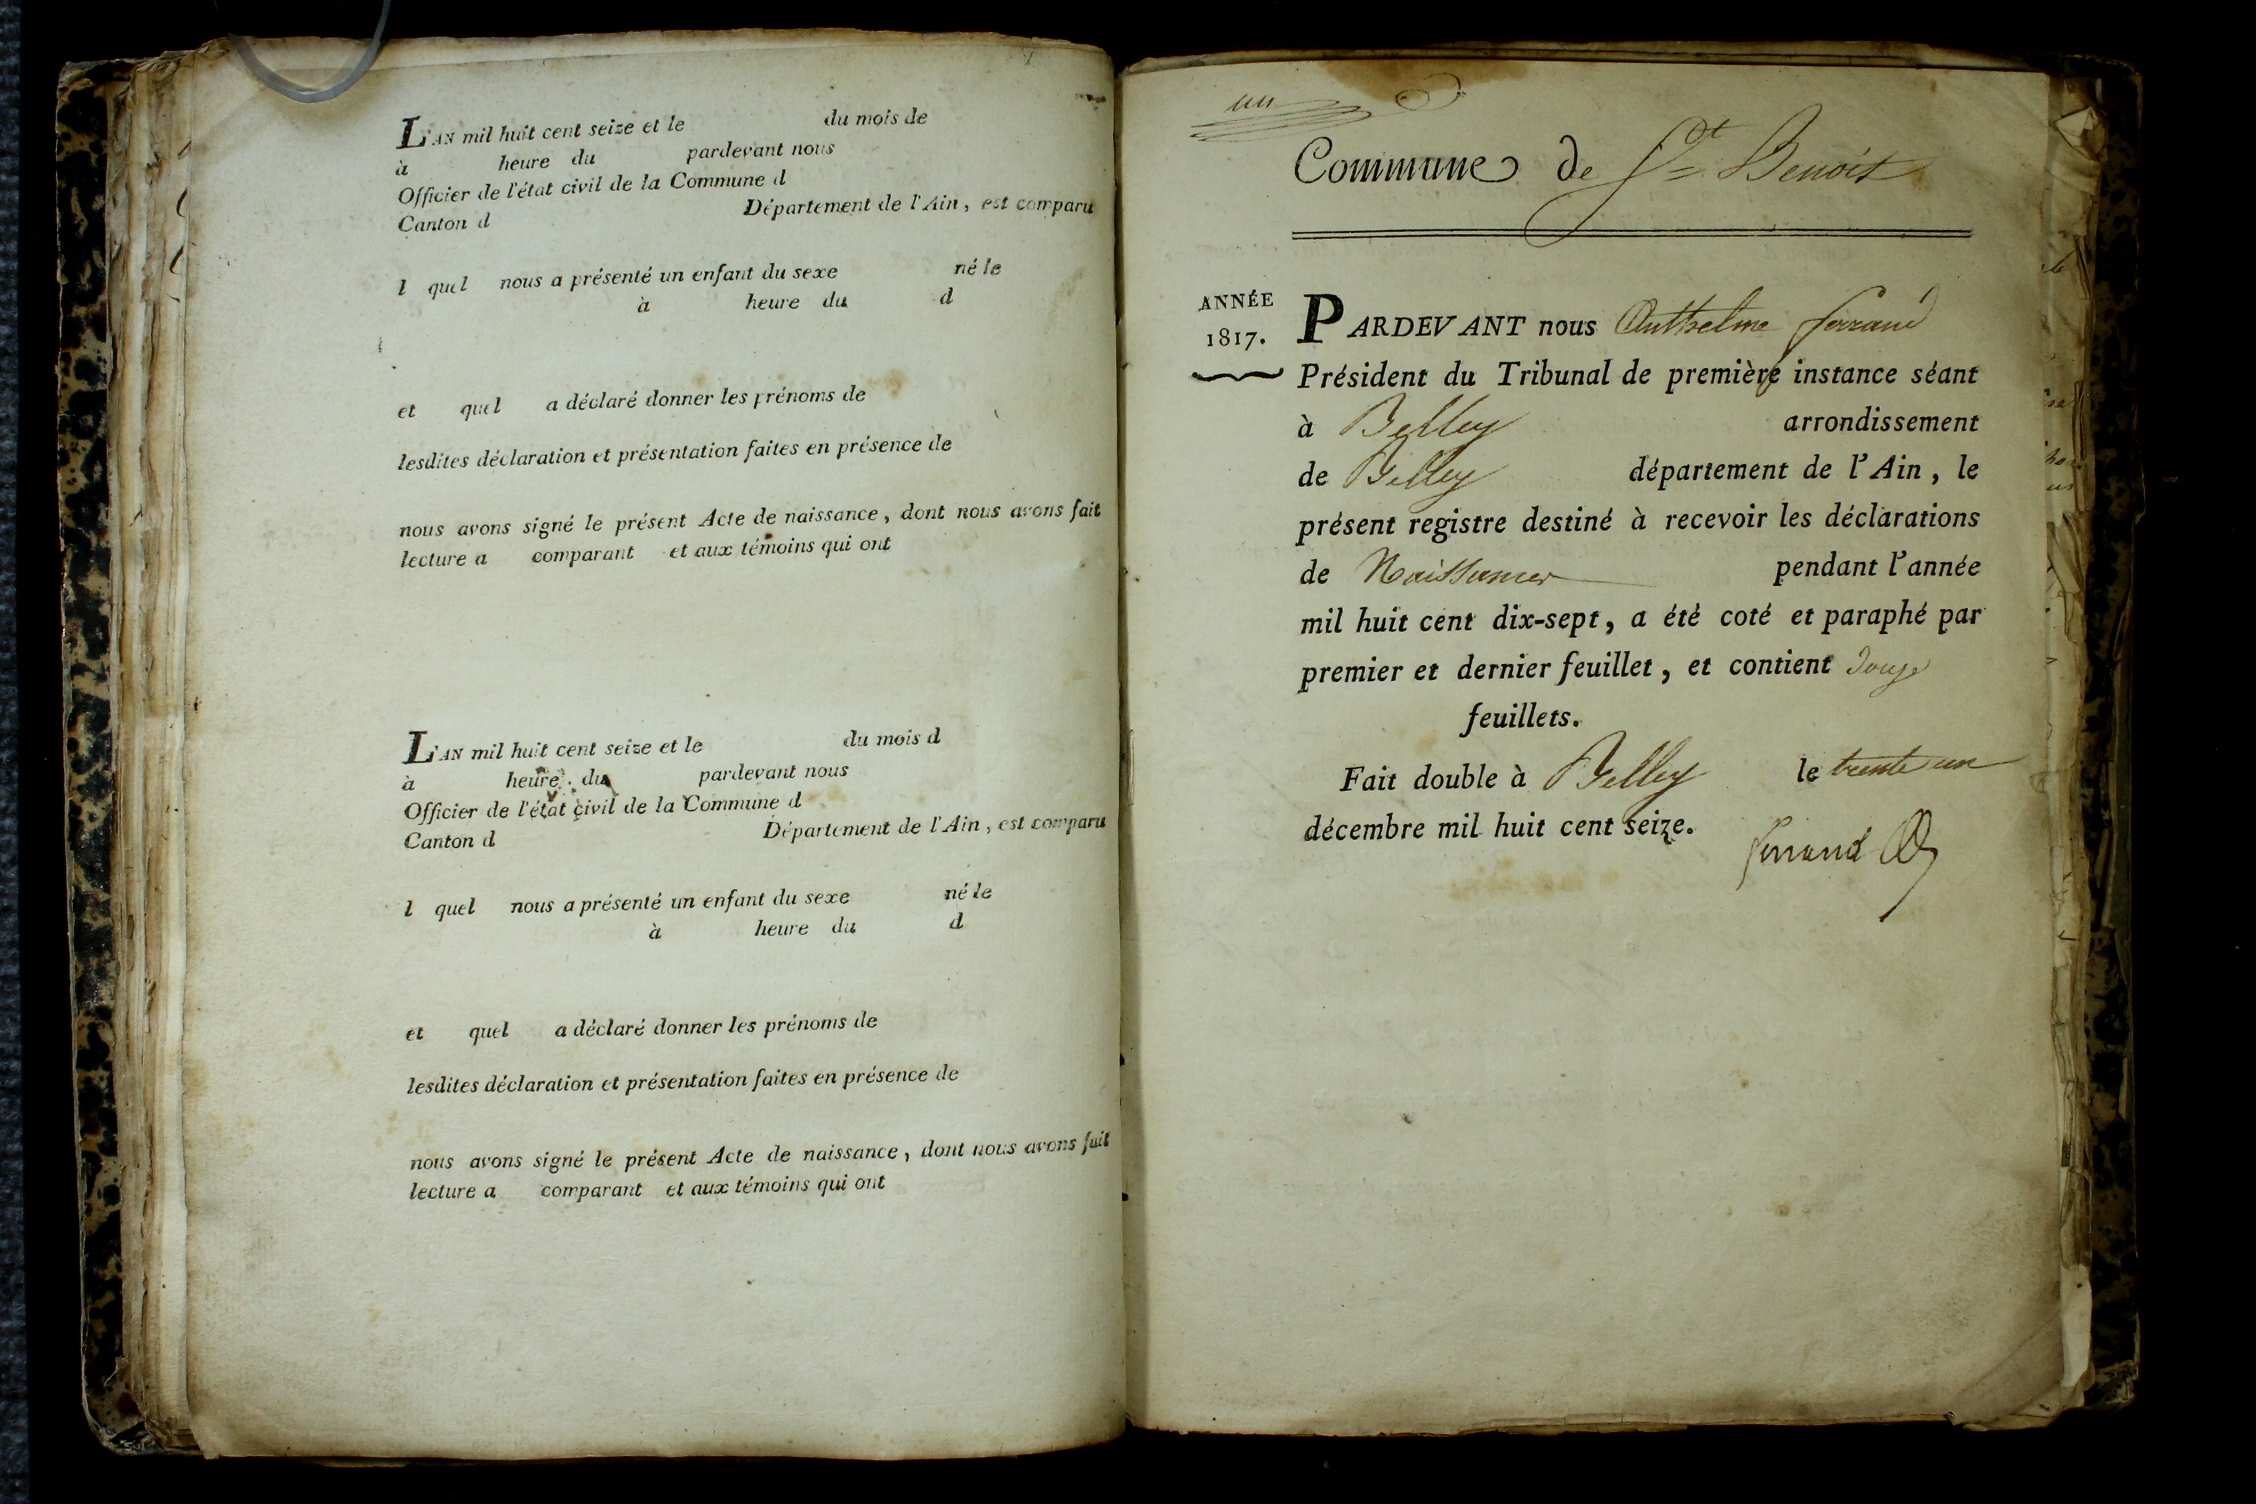 L'AN mil huit cent seize et le du mois de
à heure du pardevant nous
Officier de l'état civil de la Commune d
Canton d Département de l'Ain, est comparu
l quel nous a présenté un enfant du sexe né le
à heure du d
et quel a déclaré donner les prénoms de
lesdites déclaration et présentation faites en présence de
nous avons signé le présent Acte de naissance, dont nous avons fait
lecture a comparant et aux témoins qui ont
L'AN mil huit cent seize et le du mois d
à heure du pardevant nous
Officier de l'état civil de la Commune d
Canton d Département de l'Ain, est comparu
l quel nous a présenté un enfant du sexe né le
à heure du d
et quel a déclaré donner les prénoms de
lesdites déclaration et présentation faites en présence de
nous avons signé le présent Acte de naissance, dont nous avons fait
lecture a comparant et aux témoins qui ont
un
Commune de St Benoît
ANNÉE
1817.
PARDEVANT nous Anthelme ferrand
Président du Tribunal de première instance séant
à Belley arrondissement
de Belley département de l'Ain, le
présent registre destiné à recevoir les déclarations
de Naissances pendant l'année
mil huit cent dix-sept, a été coté et paraphé par
premier et dernier feuillet, et contient douze
feuillets.
Fait double à Belley le trente un
décembre mil huit cent seize.
ferrand